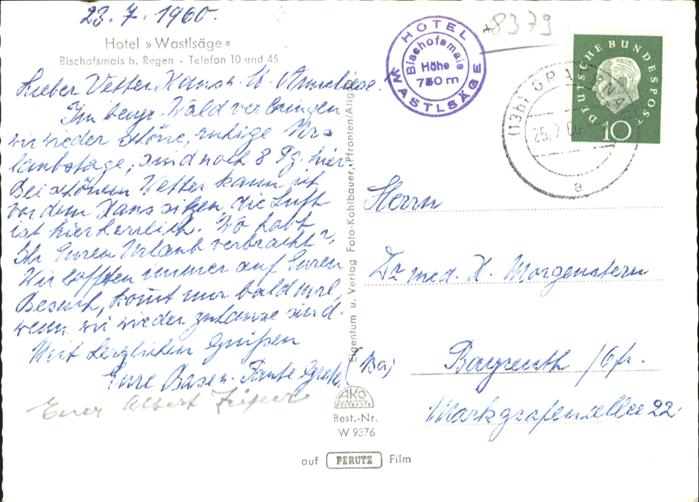 23.7.1960.
Hotel »Wastlsäge«
Bischofsmais b. Regen · Telefon 10 und 45
Lieber Vetter Hans u. Anneliese!
Im bayr. Wald verbringen
wir wieder schöne, ruhige Ur-
laubstage, sind noch 8 Tg. hier
Bei schönem Wetter kann ich
vor dem Haus sitzen, die Luft
ist hier herrlich. Wo habt
Ihr Euren Urlaub verbracht?
Wir hofften immer auf Euren
Besuch, kommt nur bald mal,
wenn wir wieder zuhause sind.
Mit herzlichen Grüßen
Eure Basen-Tante Grete
Euer Albert
HOTEL WASTLSÄGE
Bischofsmais
Höhe
750 m
8379
DEUTSCHE BUNDESPOST
10
(13b)
25.7.60
a
Herrn
Dr med. H. Morgenstern
(Ba) Bayreuth /Ofr.
Markgrafenallee 22
Eigentum u. Verlag Foto-Kohlbauer, Pfronten/Allg.
AKO
Best.-Nr.
W 9376
auf PERUTZ Film